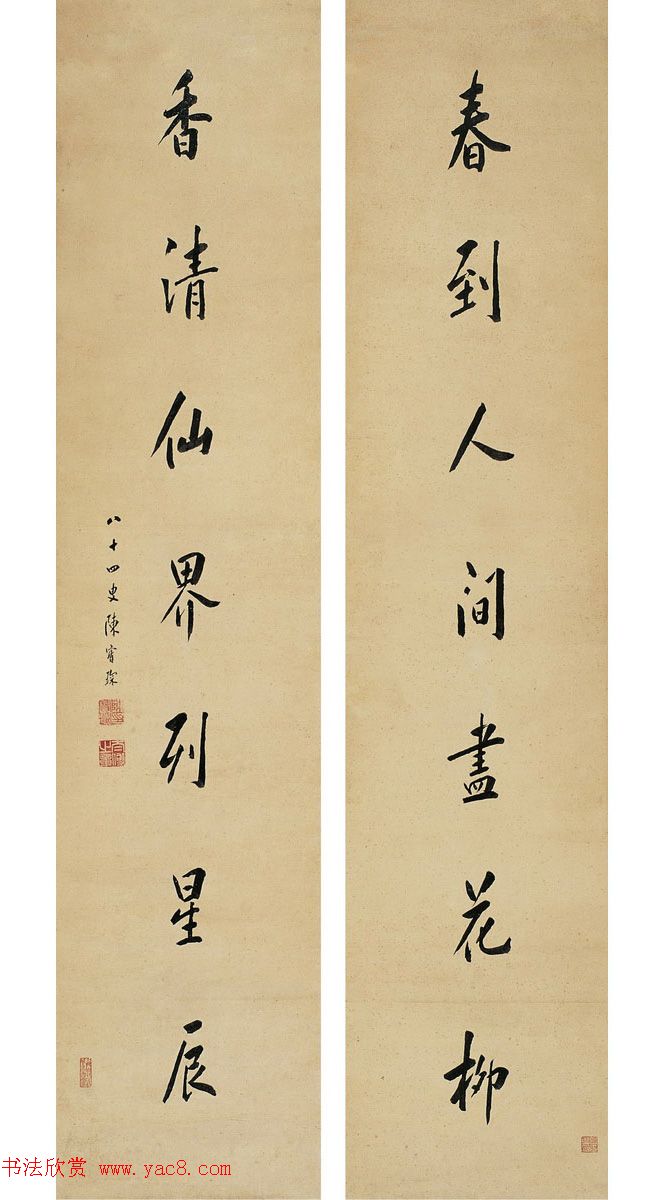 春到人间盡花柳
香清仙界列星辰
八十四叟陳寶琛
书法欣赏 www.yac8.com